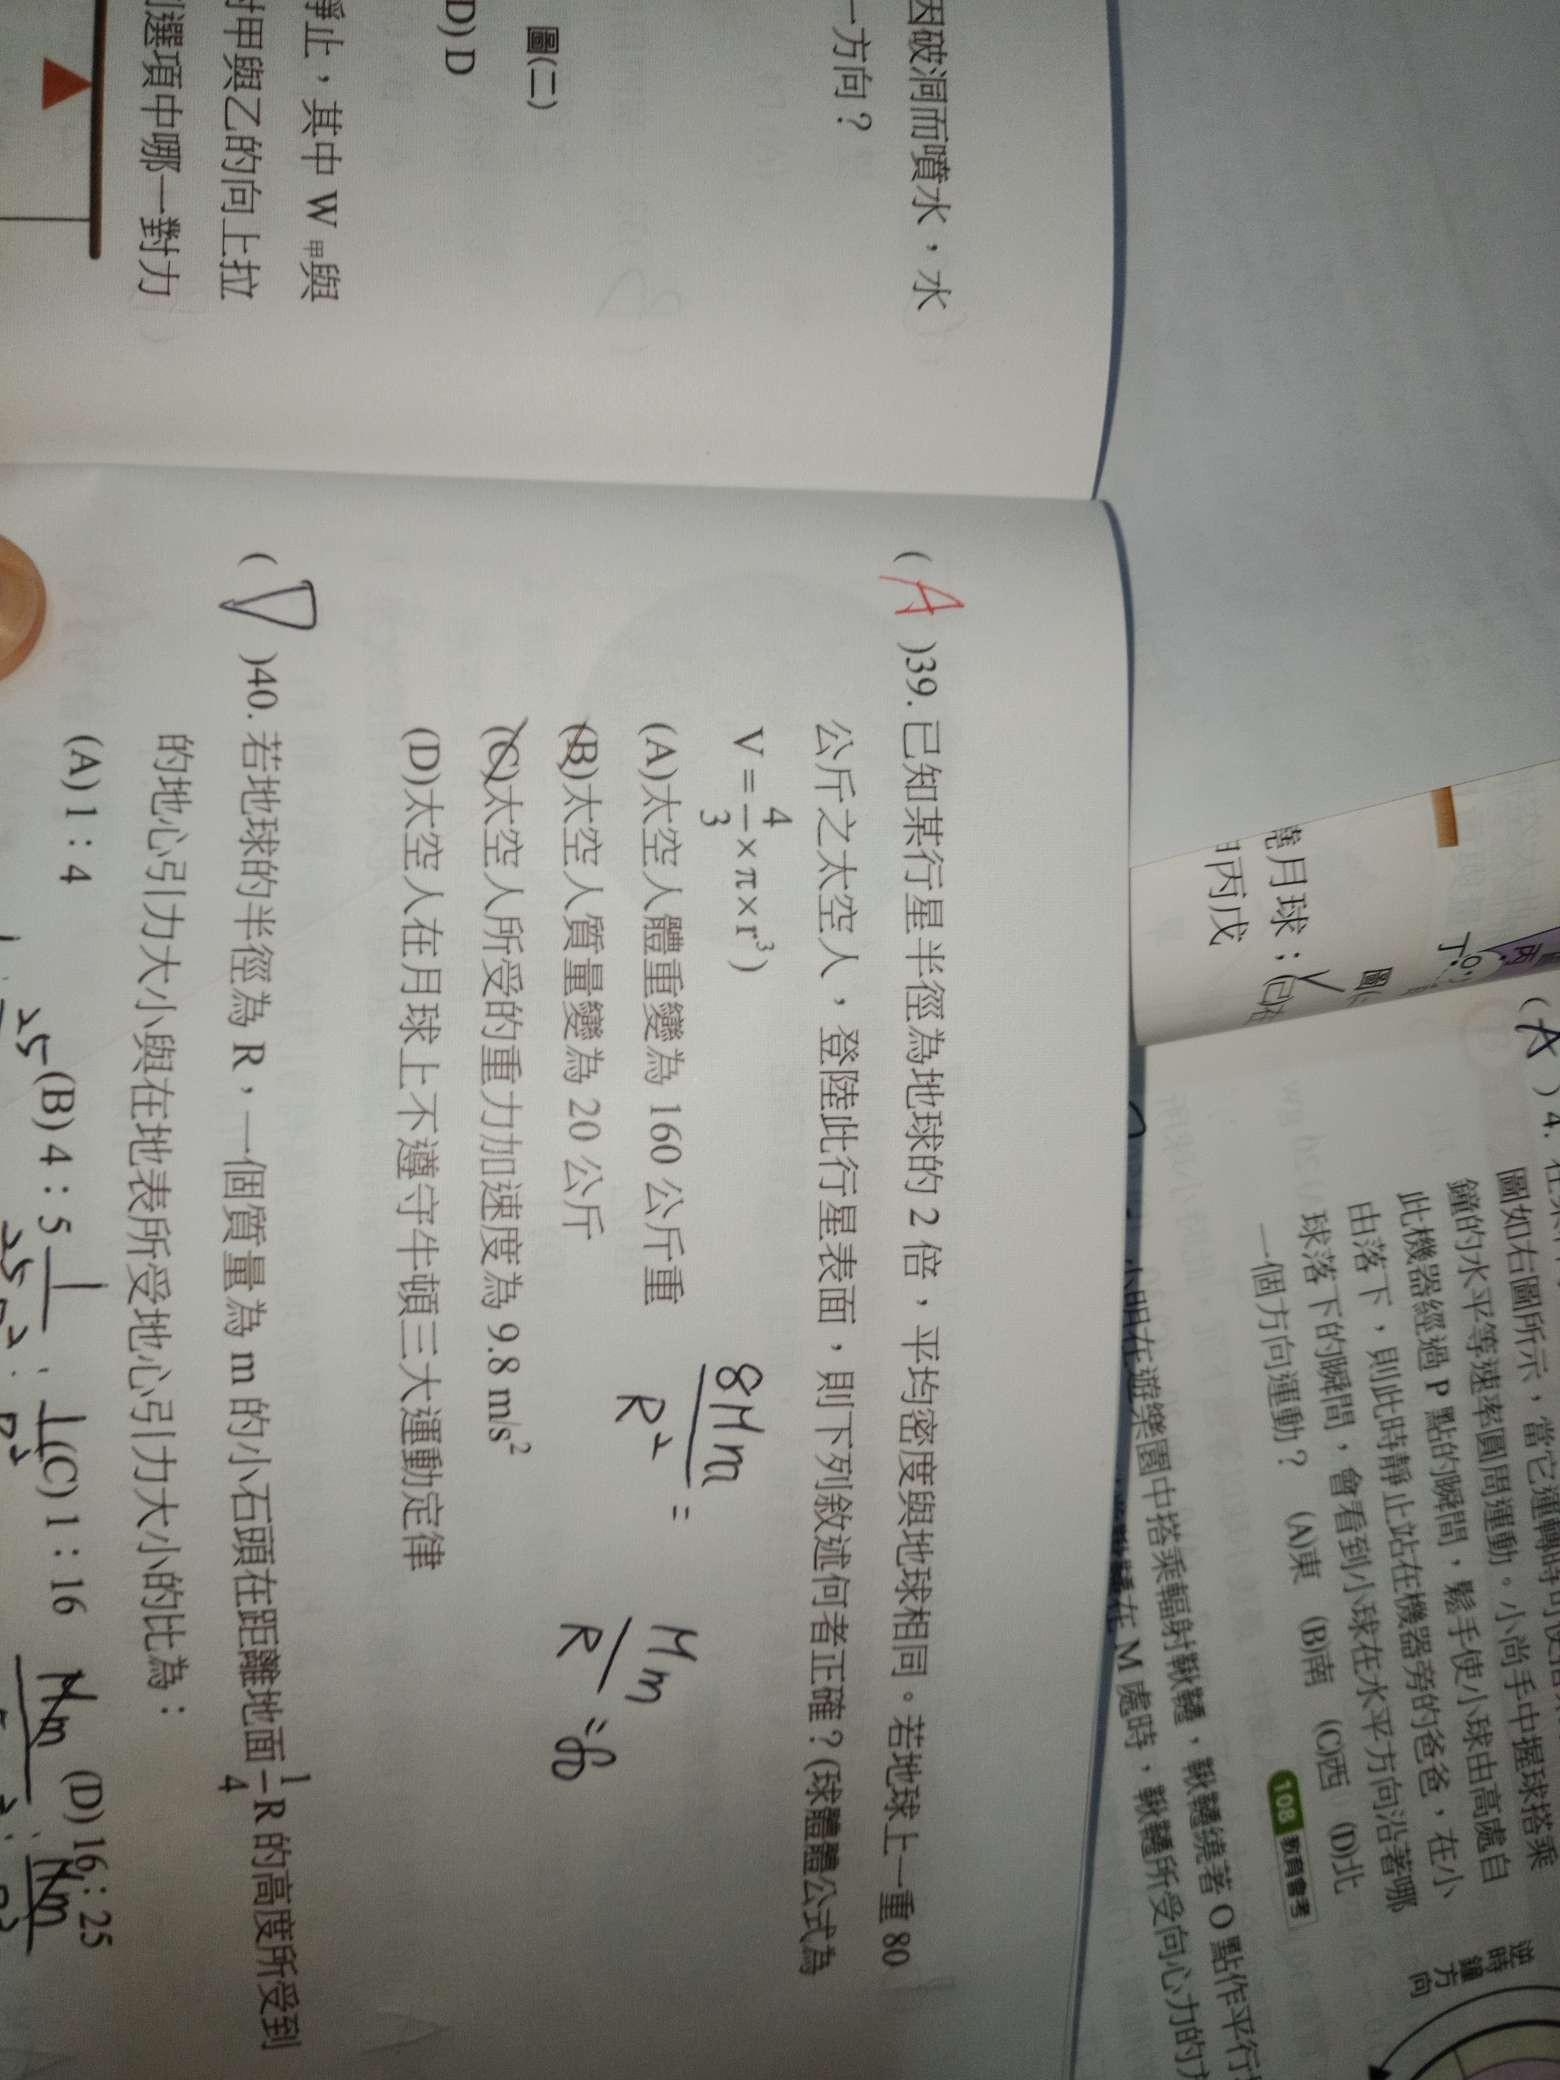 因破洞而噴水，水
一方向？
圖(二)
D) D
靜止，其中 W甲與
對甲與乙的向上拉
選項中哪一對力
( A )39. 已知某行星半徑為地球的 2 倍，平均密度與地球相同。若地球上一重 80
公斤之太空人，登陸此行星表面，則下列敘述何者正確？(球體體公式為
V = 4/3 × π × r³)
(A)太空人體重變為 160 公斤重
(B)太空人質量變為 20 公斤
(C)太空人所受的重力加速度為 9.8 m/s²
(D)太空人在月球上不遵守牛頓三大運動定律
8Mm/R² =
Mm/R =
( D )40. 若地球的半徑為 R，一個質量為 m 的小石頭在距離地面 1/4 R 的高度所受到
的地心引力大小與在地表所受地心引力大小的比為：
(A) 1 : 4
(B) 4 : 5
(C) 1 : 16
(D) 16 : 25
繞月球：
丙戊
( A ) 4.
圖如右圖所示，當它運轉時可使
鐘的水平等速率圓周運動。小尚手中握球搭乘
此機器經過 P 點的瞬間，鬆手使小球由高處自
由落下，則此時靜止站在機器旁的爸爸，在小
球落下的瞬間，會看到小球在水平方向沿著哪
一個方向運動？ (A)東 (B)南 (C)西 (D)北
108 教育會考
逆時鐘方向
小明在遊樂園中搭乘輻射鞦韆，鞦韆繞著 O 點作平行
在 M 處時，鞦韆所受向心力的方